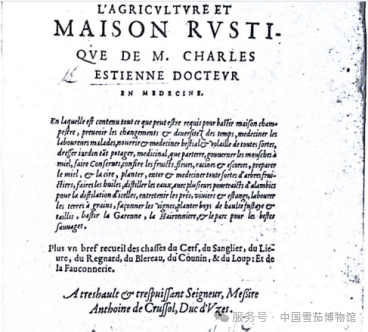 L'AGRICVLTVRE ET
MAISON RVSTI-
QVE DE M. CHARLES
ESTIENNE DOCTEVR
EN MEDECINE.
En laquelle est contenu tout ce que peut estre requis pour bastir maison cham-
pestre, preuoir les changements & diuersitez des temps, medeciner les
laboureurs malades, nourrir & medeciner bestial & vollaille de toutes sortes,
dresser iardin tāt potager, medicinal, que parterre, gouuerner les mousches à
miel, faire Conserues, confire les fruicts, fleurs, racines & escorces, preparer
le miel, & la cire, planter, enter & medeciner toute sortes d'arbres frui-
ctiers, faires les huiles, distiller les eaux, auec plusieurs pourtraicts d'alambics
pour la distillation d'icelles, entretenir les prés, viuiers & estangs, labourer
les terres à grains, façonner les vignes, planter boys de haulte fustaye &
taillis, bastir la Garenne, la Haironniere, & le parc pour les bestes
sauuages.
Plus vn bref recueil des chasses du Cerf, du Sanglier, du Lie-
ure, du Regnard, du Blereau, du Connin, & du Loup: Et de
la Fauconnerie.
A treshault & trespuissant Seigneur, Messire
Anthoine de Crussol, Duc d'Vzes.
服务号 · 中国雪茄博物馆